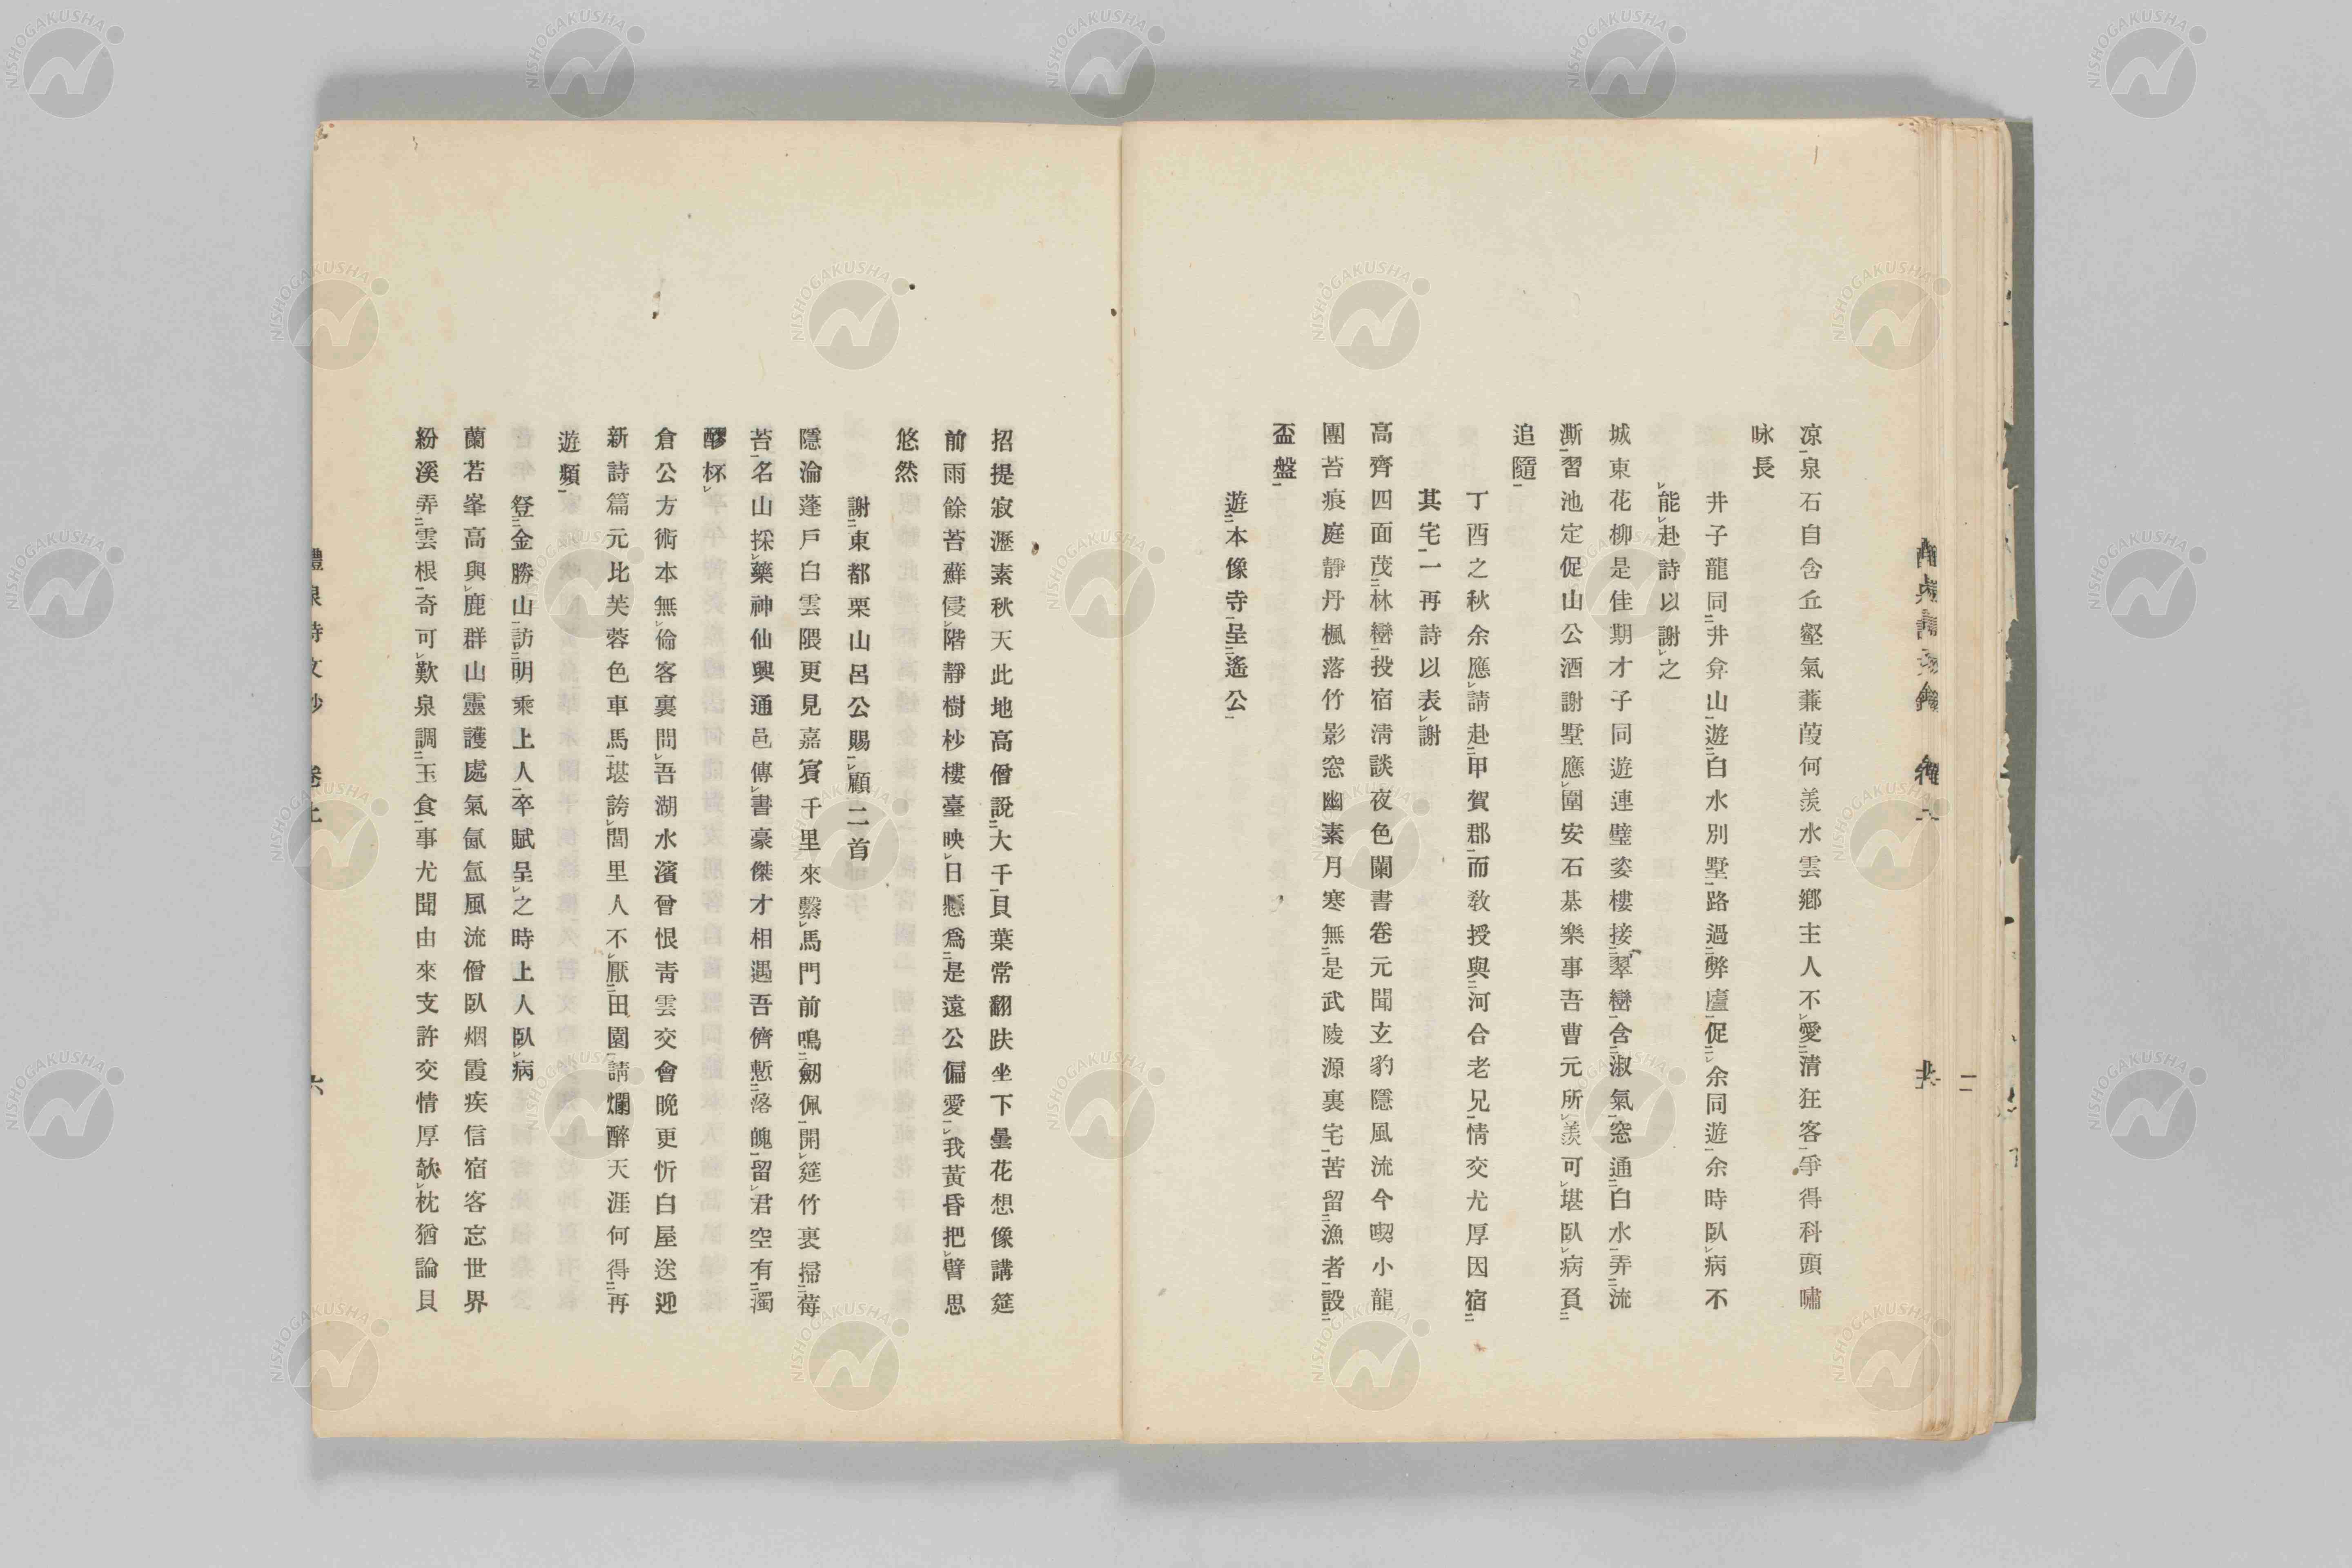 凉泉石自含丘壑氣蒹葭何羨水雲鄕主人不愛清狂客爭得科頭嘯
咏長
井子龍同井弇山遊白水別墅路過弊廬促余同遊余時臥病不
能赴詩以謝之
城東花柳是佳期才子同遊連璧姿樓接翠巒含淑氣窓通白水弄流
澌習池定促山公酒謝墅應圍安石棊樂事吾曹元所羨可堪臥病負
追隨
丁酉之秋余應請赴甲賀郡而敎授與河合老兄情交尤厚因宿
其宅一再詩以表謝
高齊四面茂林巒投宿淸談夜色闌書卷元聞玄豹隱風流今喫小龍
團苔痕庭靜丹楓落竹影窓幽素月寒無是武陵源裏宅苦留漁者設
盃盤
遊本像寺呈遙公
招提寂瀝素秋天此地高僧説大千貝葉常翻趺坐下曇花想像講筵
前雨餘苔蘚侵階靜樹杪樓臺映日懸爲是遠公偏愛我黃昏把臂思
悠然
謝東都栗山呂公賜顧二首
隱淪蓬戶白雲隈更見嘉賓千里來繫馬門前鳴劒佩開筵竹裏掃莓
苔名山採藥神仙興通邑傳書豪傑才相遇吾儕慙落魄留君空有濁
醪杯
倉公方術本無倫客裏問吾湖水濱曾恨靑雲交會晚更忻白屋送迎
新詩篇元比芙蓉色車馬堪誇閭里人不厭田園請爛醉天涯何得再
遊頻
登金勝山訪明乘上人卒賦呈之時上人臥病
蘭若峯高與鹿群山靈護處氣氤氳風流僧臥烟霞疾信宿客忘世界
紛溪弄雲根奇可歎泉調玉食事尤聞由來支許交情厚欹枕猶論貝